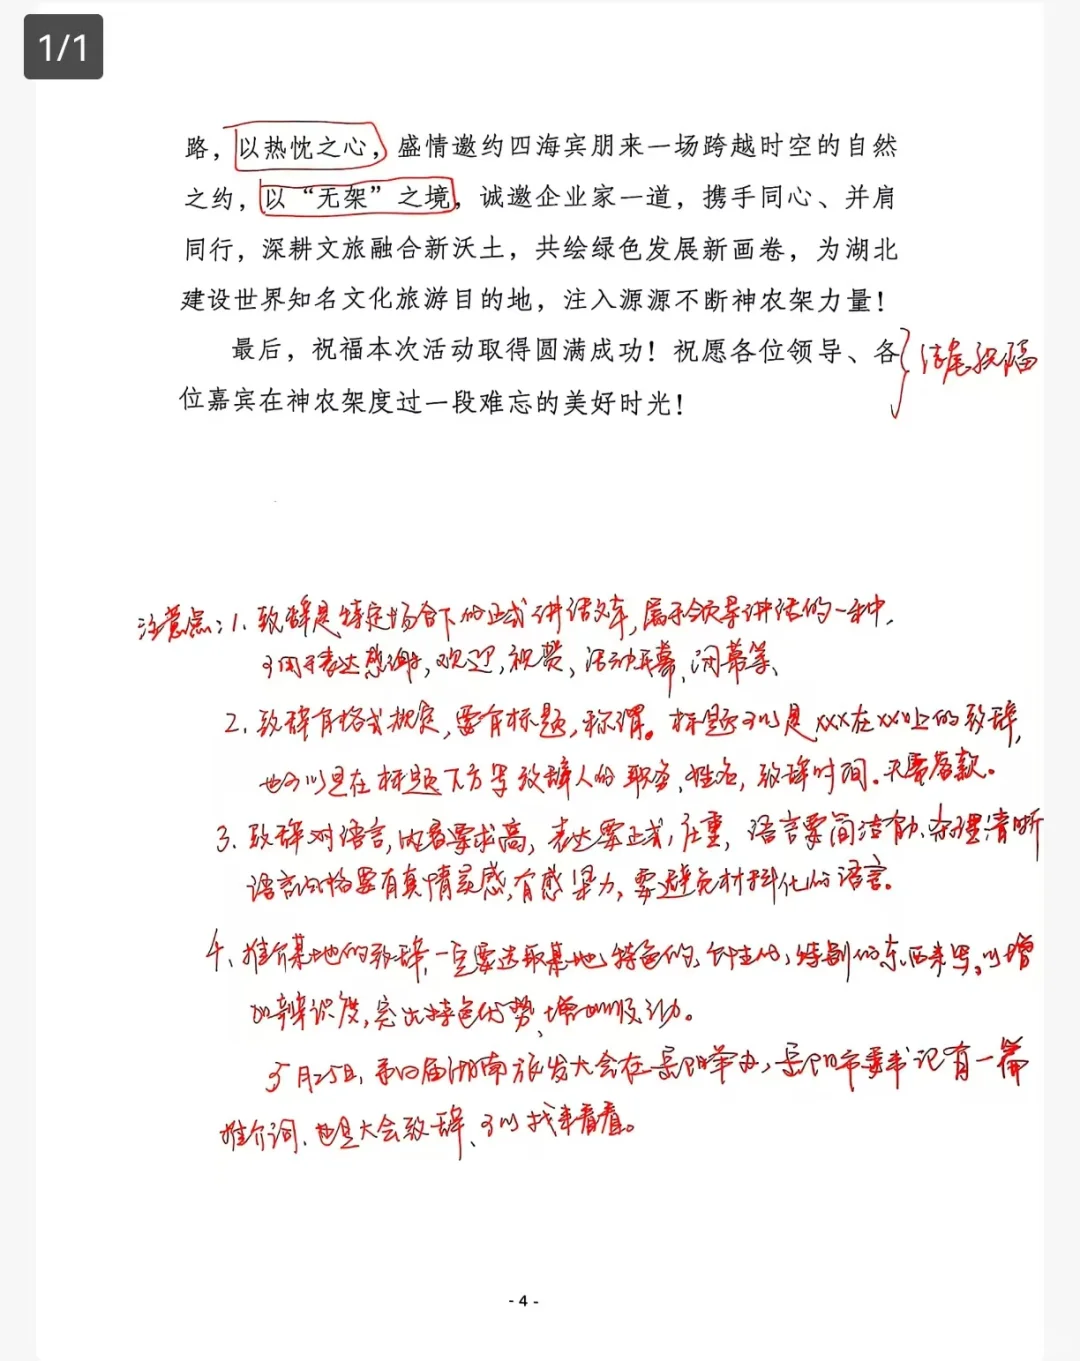 1/1
路，以热忱之心，盛情邀约四海宾朋来一场跨越时空的自然
之约，以“无架”之境，诚邀企业家一道，携手同心、并肩
同行，深耕文旅融合新沃土，共绘绿色发展新画卷，为湖北
建设世界知名文化旅游目的地，注入源源不断神农架力量！
最后，祝福本次活动取得圆满成功！祝愿各位领导、各
位嘉宾在神农架度过一段难忘的美好时光！
结尾祝福
注意点：1、致辞是特定场合下的正式讲话文章，属于领导讲话的一种，
可用于表达感谢，欢迎，祝贺，活动开幕、闭幕等、
2、致辞有格式规定，要有标题，称谓。标题可以是xxx在xx上的致辞，
也可以是在标题下方写致辞人的职务、姓名，致辞时间。不需落款。
3、致辞对语言，内容要求高，表达要正式，庄重，语言要简洁有力、条理清晰
语言风格要有真情实感，有感染力，要避免材料化的语言。
4、推介某地的致辞，一定要选取某地特色的、特别的东西来写。以增
加辨识度，突出特色优势、增加吸引力。
5月25日，第四届湖南旅发大会在岳阳举办，岳阳市委书记有一篇
推介词、也是大会致辞、可以找来看看。
- 4 -